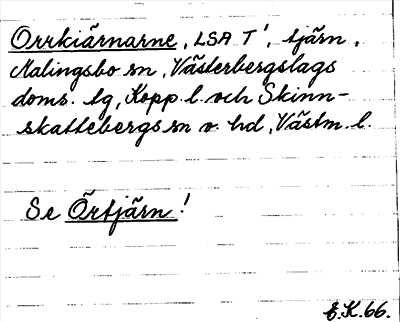 Orrkiärnarne, LSA T', tjärn,
Malingsbo sn, Västerbergslags
doms. tg, Kopp. l. och Skinn-
skattebergs sn o. hd, Västm. l.
Se Örtjärn!
E.K. 66.